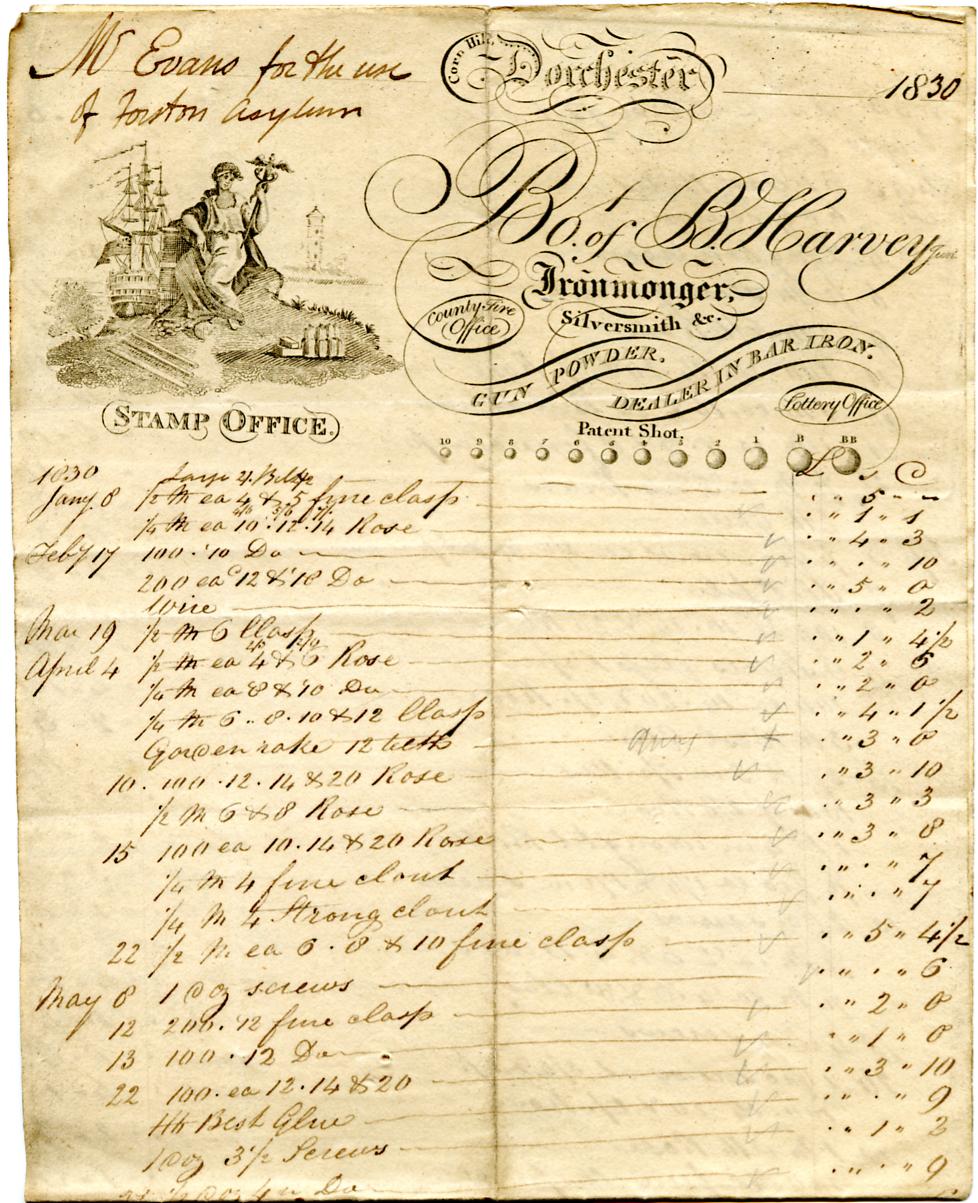 Mr Evans for the use
of Forston Asylum
Corn Hill,
Dorchester 1830
Bo.t of B. Harvey Junr.
Ironmonger,
Silversmith &c.
County Fire Office
GUN POWDER.
DEALER IN BAR IRON.
Lottery Office
STAMP OFFICE.
Patent Shot.
10 9 8 7 6 5 4 3 2 1 B BB
£ s D
1830
Jany. 8 ½ M ea 4 & 5 fine clasp " 5 " -
¼ M ea 10 . 12 . 14 Rose " 1 " 1
Feby 17 100 . 10 Do " 4 " 3
200 ea 12 & 18 Do " . " 10
Wire " 5 " 0
Mar 19 ½ M 6 Clasp " . " 2
April 4 ½ M ea 4 & 6 Rose " 1 " 4½
¼ M ea 8 & 10 Do " 2 " 6
¼ M 6 . 8 . 10 & 12 Clasp " 2 " 0
Garden rake 12 teeth " 4 " 1½
" 3 " 0
10 . 100 . 12 . 14 & 20 Rose " 3 " 10
½ M 6 & 8 Rose " 3 " 3
15 100 ea 10 . 14 & 20 Rose " 3 " 8
¼ M 4 fine clout " . " 7
¼ M 4 Strong clout " . " 7
22 ½ M ea 6 . 8 & 10 fine clasp " 5 " 4½
May 8 1 Doz screws " . " 6
12 200 . 12 fine clasp " 2 " 0
13 100 . 12 Do " 1 " 0
22 100 . ea 12 . 14 & 20 " 3 " 10
Best Glue " . " 9
1 Doz 3½ Screws " 1 " 2
½ Doz 4 in Do " . " 9